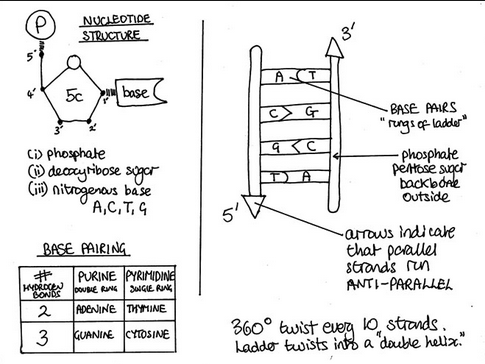 P
NUCLEOTIDE
STRUCTURE
5'
4'
5c
1'
base
3'
2'
(i) phosphate
(ii) deoxyribose sugar
(iii) nitrogenous base
A, C, T, G
BASE PAIRING
# HYDROGEN BONDS
PURINE DOUBLE RING
PYRIMIDINE SINGLE RING
2 ADENINE THYMINE
3 GUANINE CYTOSINE
3'
A T
C G
G C
T A
5'
BASE PAIRS
"rungs of ladder"
phosphate
pentose sugar
backbone
outside
arrows indicate
that parallel
strands run
ANTI-PARALLEL
360° twist every 10 strands.
Ladder twists into a "double helix."